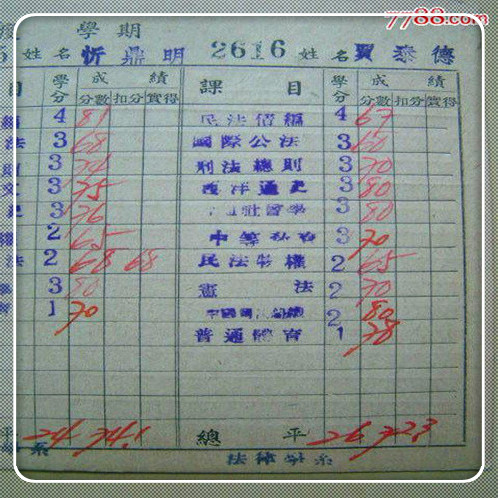 7788.com
學期
姓名 忻鼎明 2616 姓名 賈泰德
目 學分 成績 課目 學分 成績
分數 扣分 實得 分數 扣分 實得
4 81 民法債編 4 67
法 3 68 國際公法 3 60
則 3 刑法總則 3 70
3 75 西洋通史 3 80
史 3 76 3 80
2 65 3 70
法 2 68 68 民法物權 2 65
3 80 憲法 2 70
育 1 70 2 80
普通體育 1 78
平 24 74.1 總平 26 72.3
系 法律學系